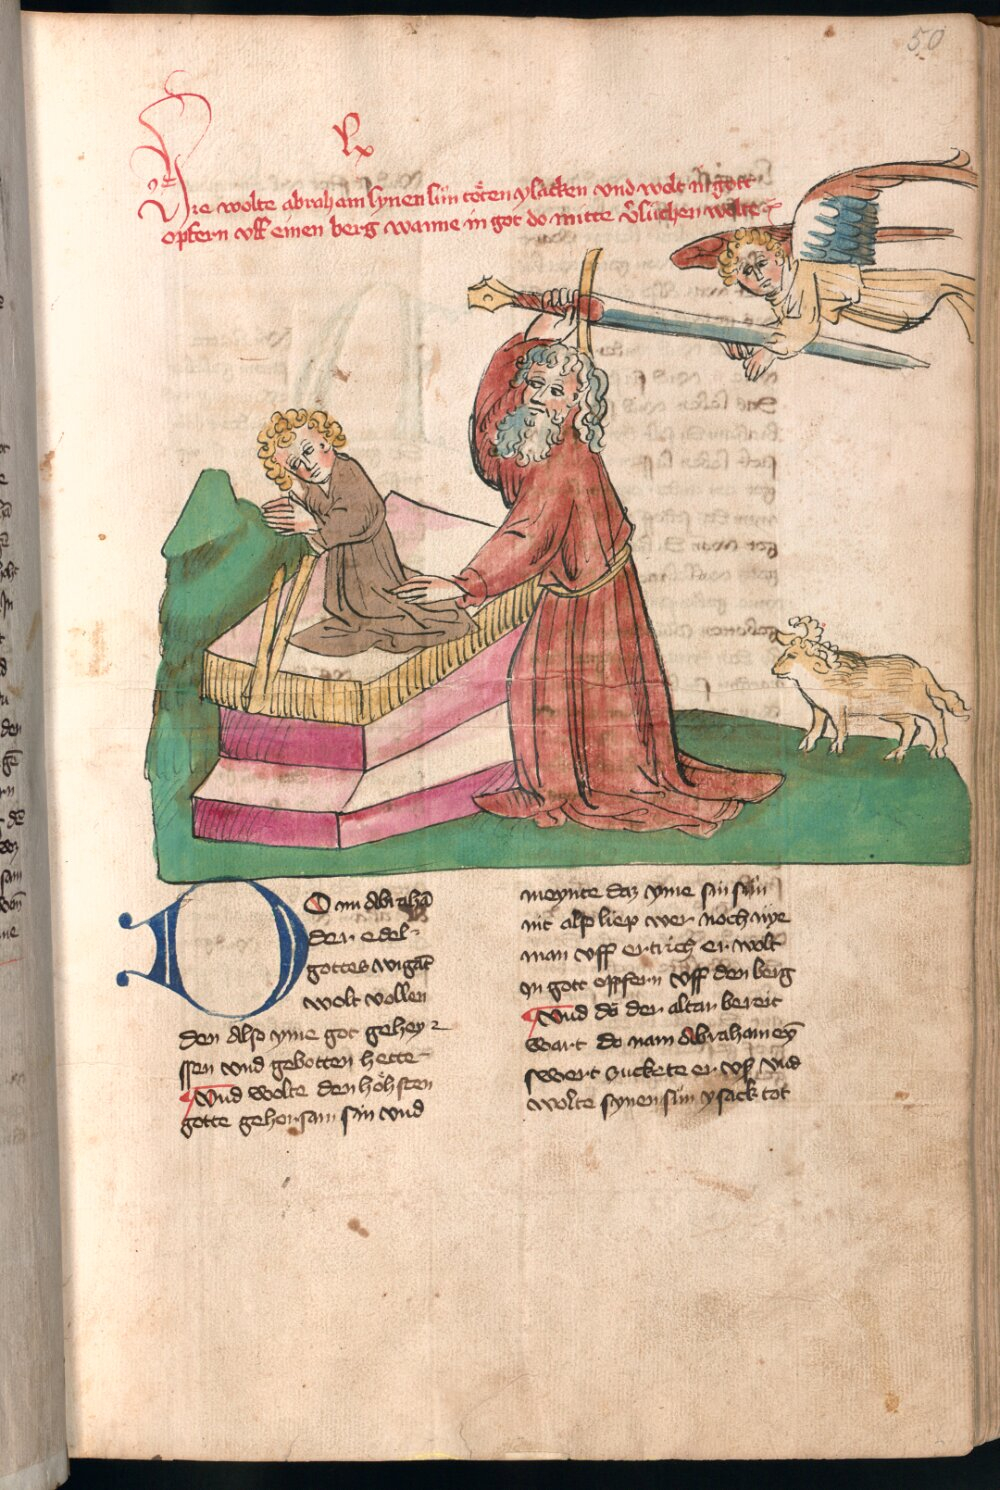 50
lx
Hie wolte abraham synen sün töten ysacken vnd wolt in gott
opfern vff einen berg wanne in got do mitte v̄süchen wolte
DO nu Abrahā
der edel
gottes wigāt
wolt vollen
den Also yme got gehey
ssen vnd gebotten hette
Vnd wolte den höhsten
gotte gehorsam sin vnd
meynte daz yme sin sün
nit also liep wer noch nye
man vff ertrich er wolt
In gott opffern vff den berg
Vnd do der altar bereit
wart do nam Abraham ey̅
swert zuckete er vß vnd
wolte synen sün ysack tot